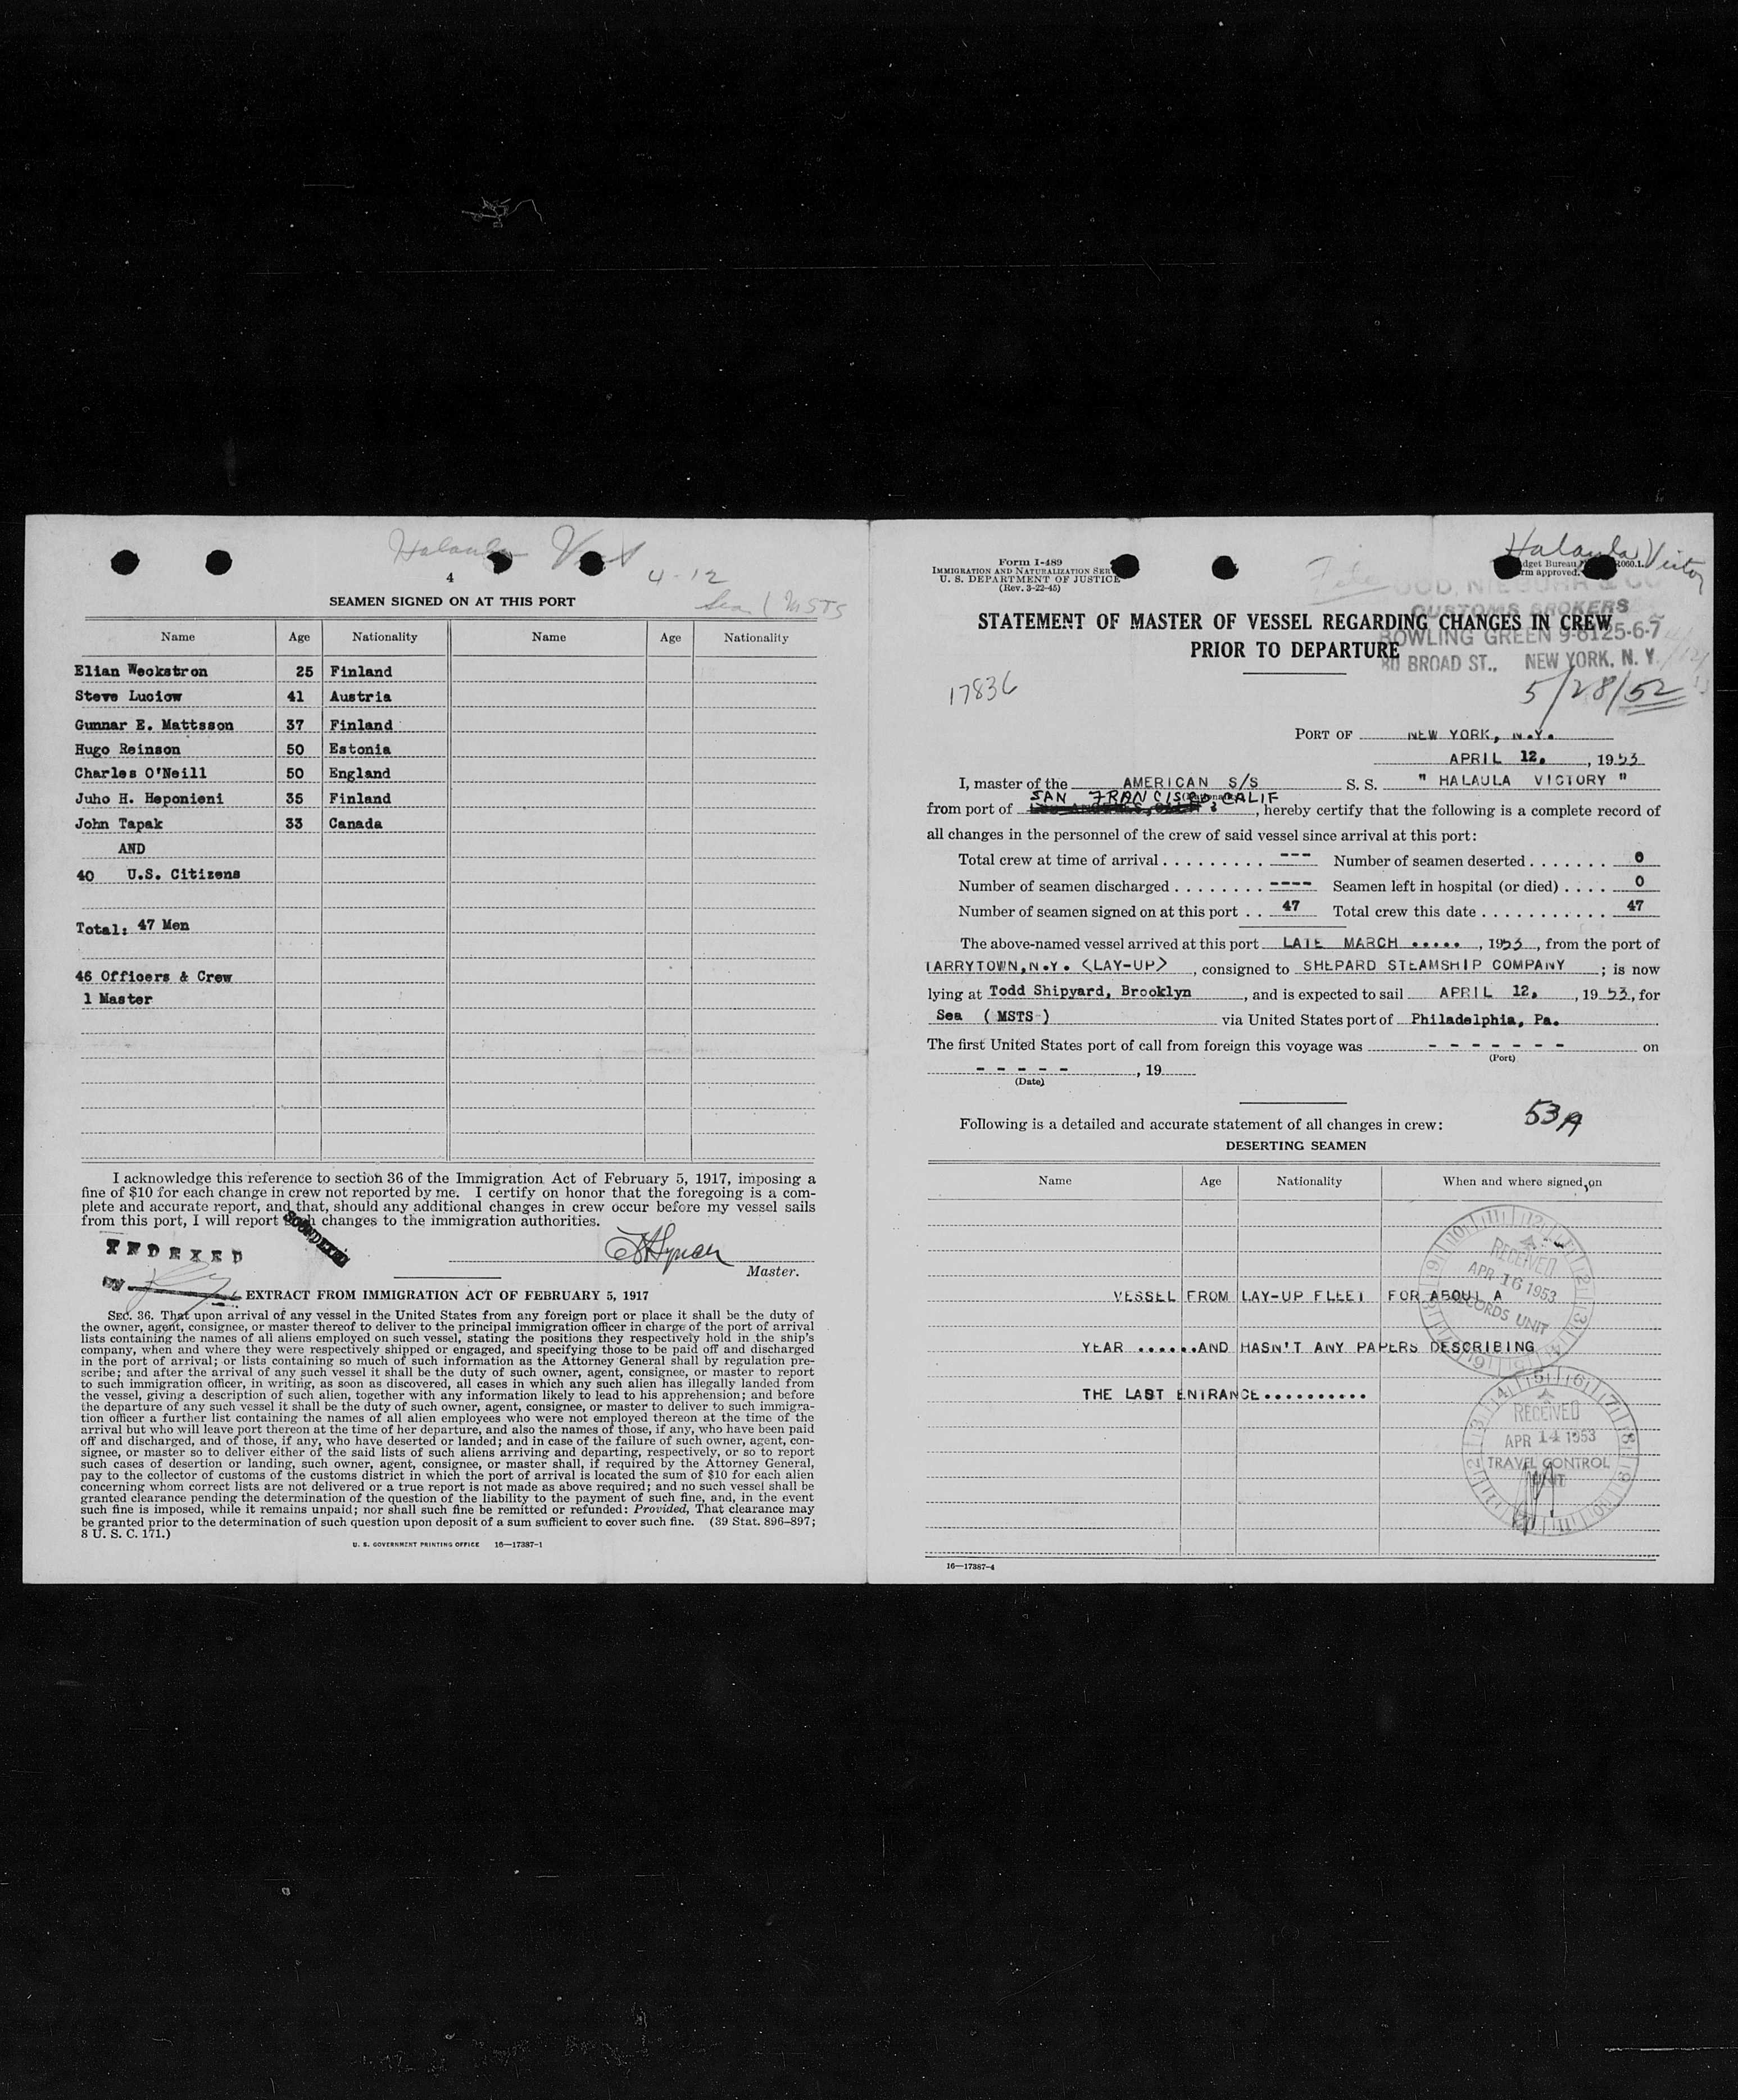 Halaula Vict
4
4-12
Sea (MSTS
SEAMEN SIGNED ON AT THIS PORT
Name Age Nationality Name Age Nationality
Elian Weckstron 25 Finland
Steve Luciow 41 Austria
Gunnar E. Mattsson 37 Finland
Hugo Reinson 50 Estonia
Charles O'Neill 50 England
Juho H. Heponieni 35 Finland
John Tapak 33 Canada
AND
40 U.S. Citizens
Total: 47 Men
46 Officers & Crew
1 Master
I acknowledge this reference to section 36 of the Immigration Act of February 5, 1917, imposing a
fine of $10 for each change in crew not reported by me. I certify on honor that the foregoing is a com-
plete and accurate report, and that, should any additional changes in crew occur before my vessel sails
from this port, I will report such changes to the immigration authorities.
INDEXED
SOUNDEXED
Master.
EXTRACT FROM IMMIGRATION ACT OF FEBRUARY 5, 1917
SEC. 36. That upon arrival of any vessel in the United States from any foreign port or place it shall be the duty of
the owner, agent, consignee, or master thereof to deliver to the principal immigration officer in charge of the port of arrival
lists containing the names of all aliens employed on such vessel, stating the positions they respectively hold in the ship's
company, when and where they were respectively shipped or engaged, and specifying those to be paid off and discharged
in the port of arrival; or lists containing so much of such information as the Attorney General shall by regulation pre-
scribe; and after the arrival of any such vessel it shall be the duty of such owner, agent, consignee, or master to report
to such immigration officer, in writing, as soon as discovered, all cases in which any such alien has illegally landed from
the vessel, giving a description of such alien, together with any information likely to lead to his apprehension; and before
the departure of any such vessel it shall be the duty of such owner, agent, consignee, or master to deliver to such immigra-
tion officer a further list containing the names of all alien employees who were not employed thereon at the time of the
arrival but who will leave port thereon at the time of her departure, and also the names of those, if any, who have been paid
off and discharged, and of those, if any, who have deserted or landed; and in case of the failure of such owner, agent, con-
signee, or master so to deliver either of the said lists of such aliens arriving and departing, respectively, or so to report
such cases of desertion or landing, such owner, agent, consignee, or master shall, if required by the Attorney General,
pay to the collector of customs of the customs district in which the port of arrival is located the sum of $10 for each alien
concerning whom correct lists are not delivered or a true report is not made as above required; and no such vessel shall be
granted clearance pending the determination of the question of the liability to the payment of such fine, and, in the event
such fine is imposed, while it remains unpaid; nor shall such fine be remitted or refunded: Provided, That clearance may
be granted prior to the determination of such question upon deposit of a sum sufficient to cover such fine. (39 Stat. 896-897;
8 U. S. C. 171.)
U. S. GOVERNMENT PRINTING OFFICE 16—17387-1
Form I-489
IMMIGRATION AND NATURALIZATION SER
U. S. DEPARTMENT OF JUSTICE
(Rev. 3-22-45)
File
Halaula Victory
dget Bureau R060.1.
rm approved.
CUSTOMS BROKERS
BOWLING GREEN 9-6125-6-7
80 BROAD ST., NEW YORK, N. Y.
STATEMENT OF MASTER OF VESSEL REGARDING CHANGES IN CREW
PRIOR TO DEPARTURE
17836
5/28/52
PORT OF NEW YORK, N.Y.
APRIL 12, , 1953
I, master of the AMERICAN S/S S. S. " HALAULA VICTORY "
SAN FRANCISCO CALIF
from port of , hereby certify that the following is a complete record of
all changes in the personnel of the crew of said vessel since arrival at this port:
Total crew at time of arrival --- Number of seamen deserted 0
Number of seamen discharged ---- Seamen left in hospital (or died) 0
Number of seamen signed on at this port 47 Total crew this date 47
The above-named vessel arrived at this port LATE MARCH ..... , 1953 , from the port of
TARRYTOWN, N.Y. <LAY-UP> , consigned to SHEPARD STEAMSHIP COMPANY ; is now
lying at Todd Shipyard, Brooklyn , and is expected to sail APRIL 12, , 1953, for
Sea (MSTS) via United States port of Philadelphia, Pa.
The first United States port of call from foreign this voyage was - - - - - - - on
(Port)
- - - - - , 19
(Date)
53A
Following is a detailed and accurate statement of all changes in crew:
DESERTING SEAMEN
Name Age Nationality When and where signed on
RECEIVED
APR 16 1953
RECORDS UNIT
VESSEL FROM LAY-UP FLEET FOR ABOUT A
YEAR ......AND HASN'T ANY PAPERS DESCRIBING
THE LAST ENTRANCE..........
RECEIVED
APR 14 1953
TRAVEL CONTROL
UNIT
16—17387-4